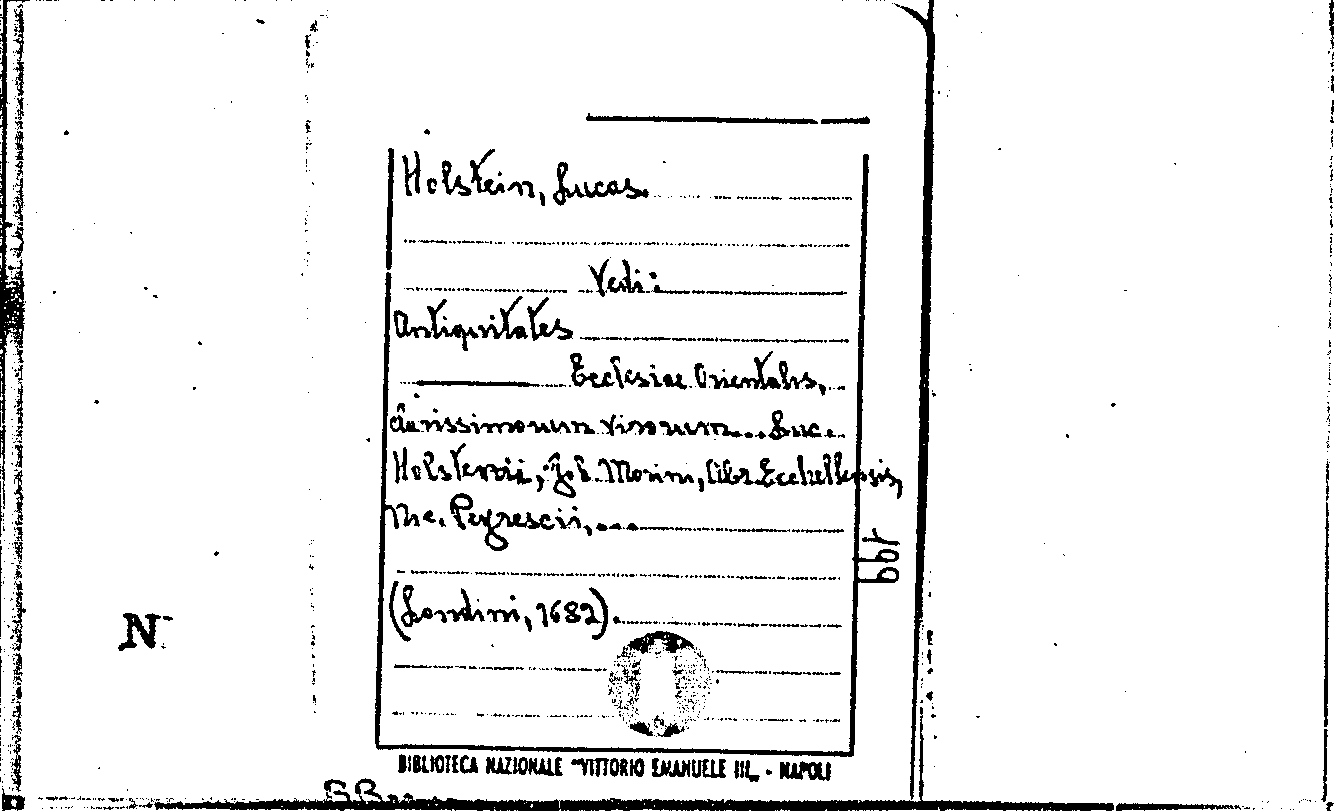 Holstein, Lucas.
Vedi:
Antiquitates
Ecclesiae Orientalis,
clarissimorum virorum... Luc.
Holstenii, Joh. Morini, Abr. Ecchellensis,
Nic. Peyrescii,...
(Londini, 1682).
N
BIBLIOTECA NAZIONALE "VITTORIO EMANUELE III„ - NAPOLI